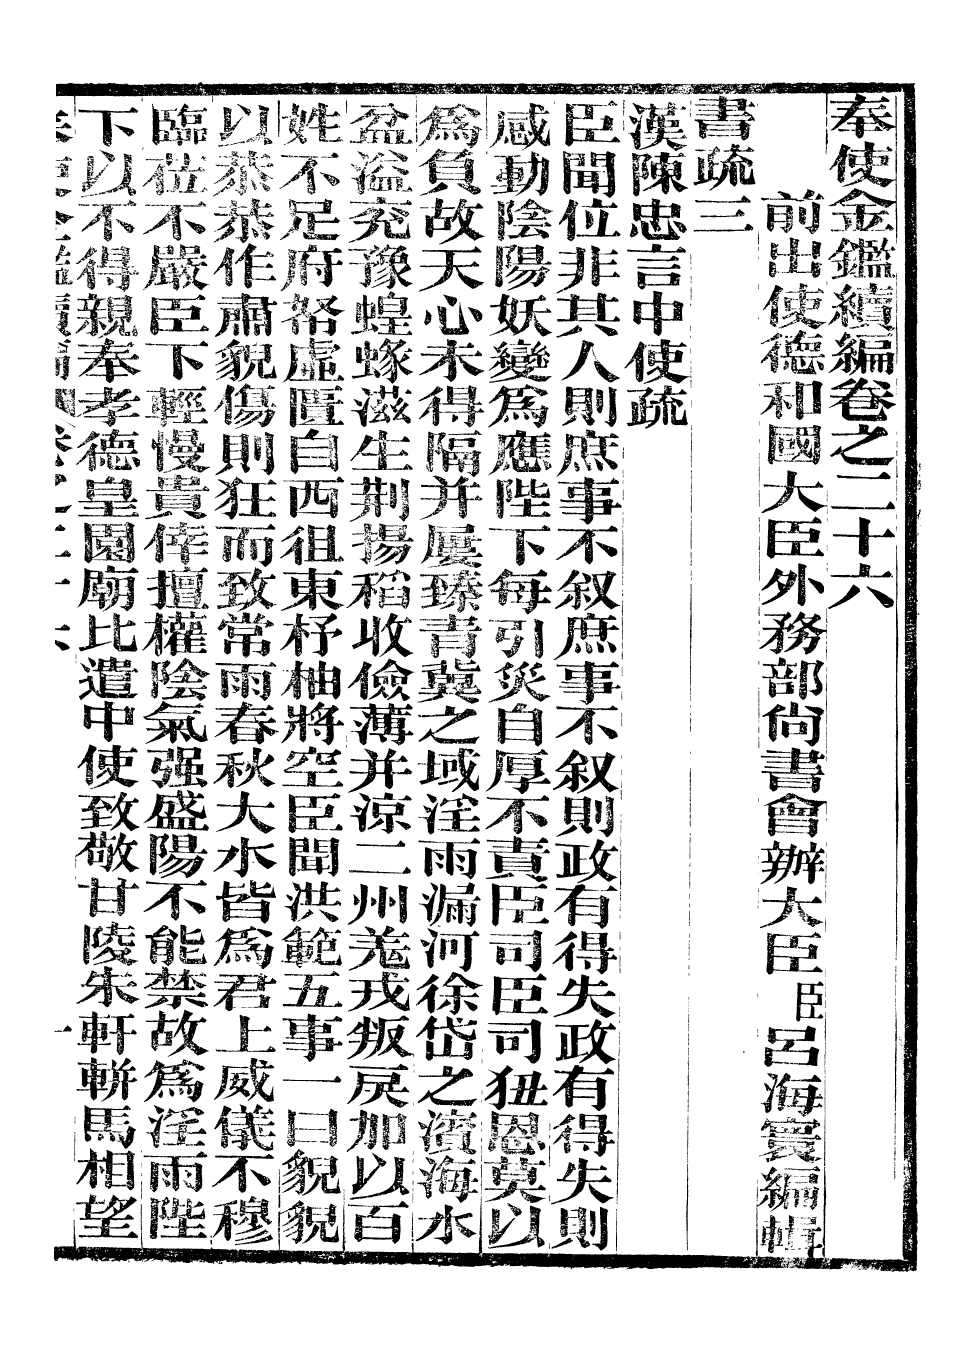 奉使金鑑續編卷之二十六
前出使德和國大臣外務部尚書會辦大臣臣呂海寰編輯
書疏三
漢陳忠言中使疏
臣聞位非其人則庶事不叙庶事不叙則政有得失政有得失則
感動陰陽妖變爲應陛下每引災自厚不責臣司臣司狃恩莫以
爲負故天心未得隔并屢臻青冀之域淫雨漏河徐岱之濱海水
盆溢兖豫蝗蝝滋生荆揚稻收儉薄并涼二州羌戎叛戾加以百
姓不足府帑虛匱自西徂東杼柚將空臣聞洪範五事一曰貌貌
以恭恭作肅貌傷則狂而致常雨春秋大水皆爲君上威儀不穆
臨莅不嚴臣下輕慢貴倖擅權陰氣强盛陽不能禁故爲淫雨陛
下以不得親奉孝德皇園廟比遣中使致敬甘陵朱軒軿馬相望
奉使金鑑續編 卷之二十六 一